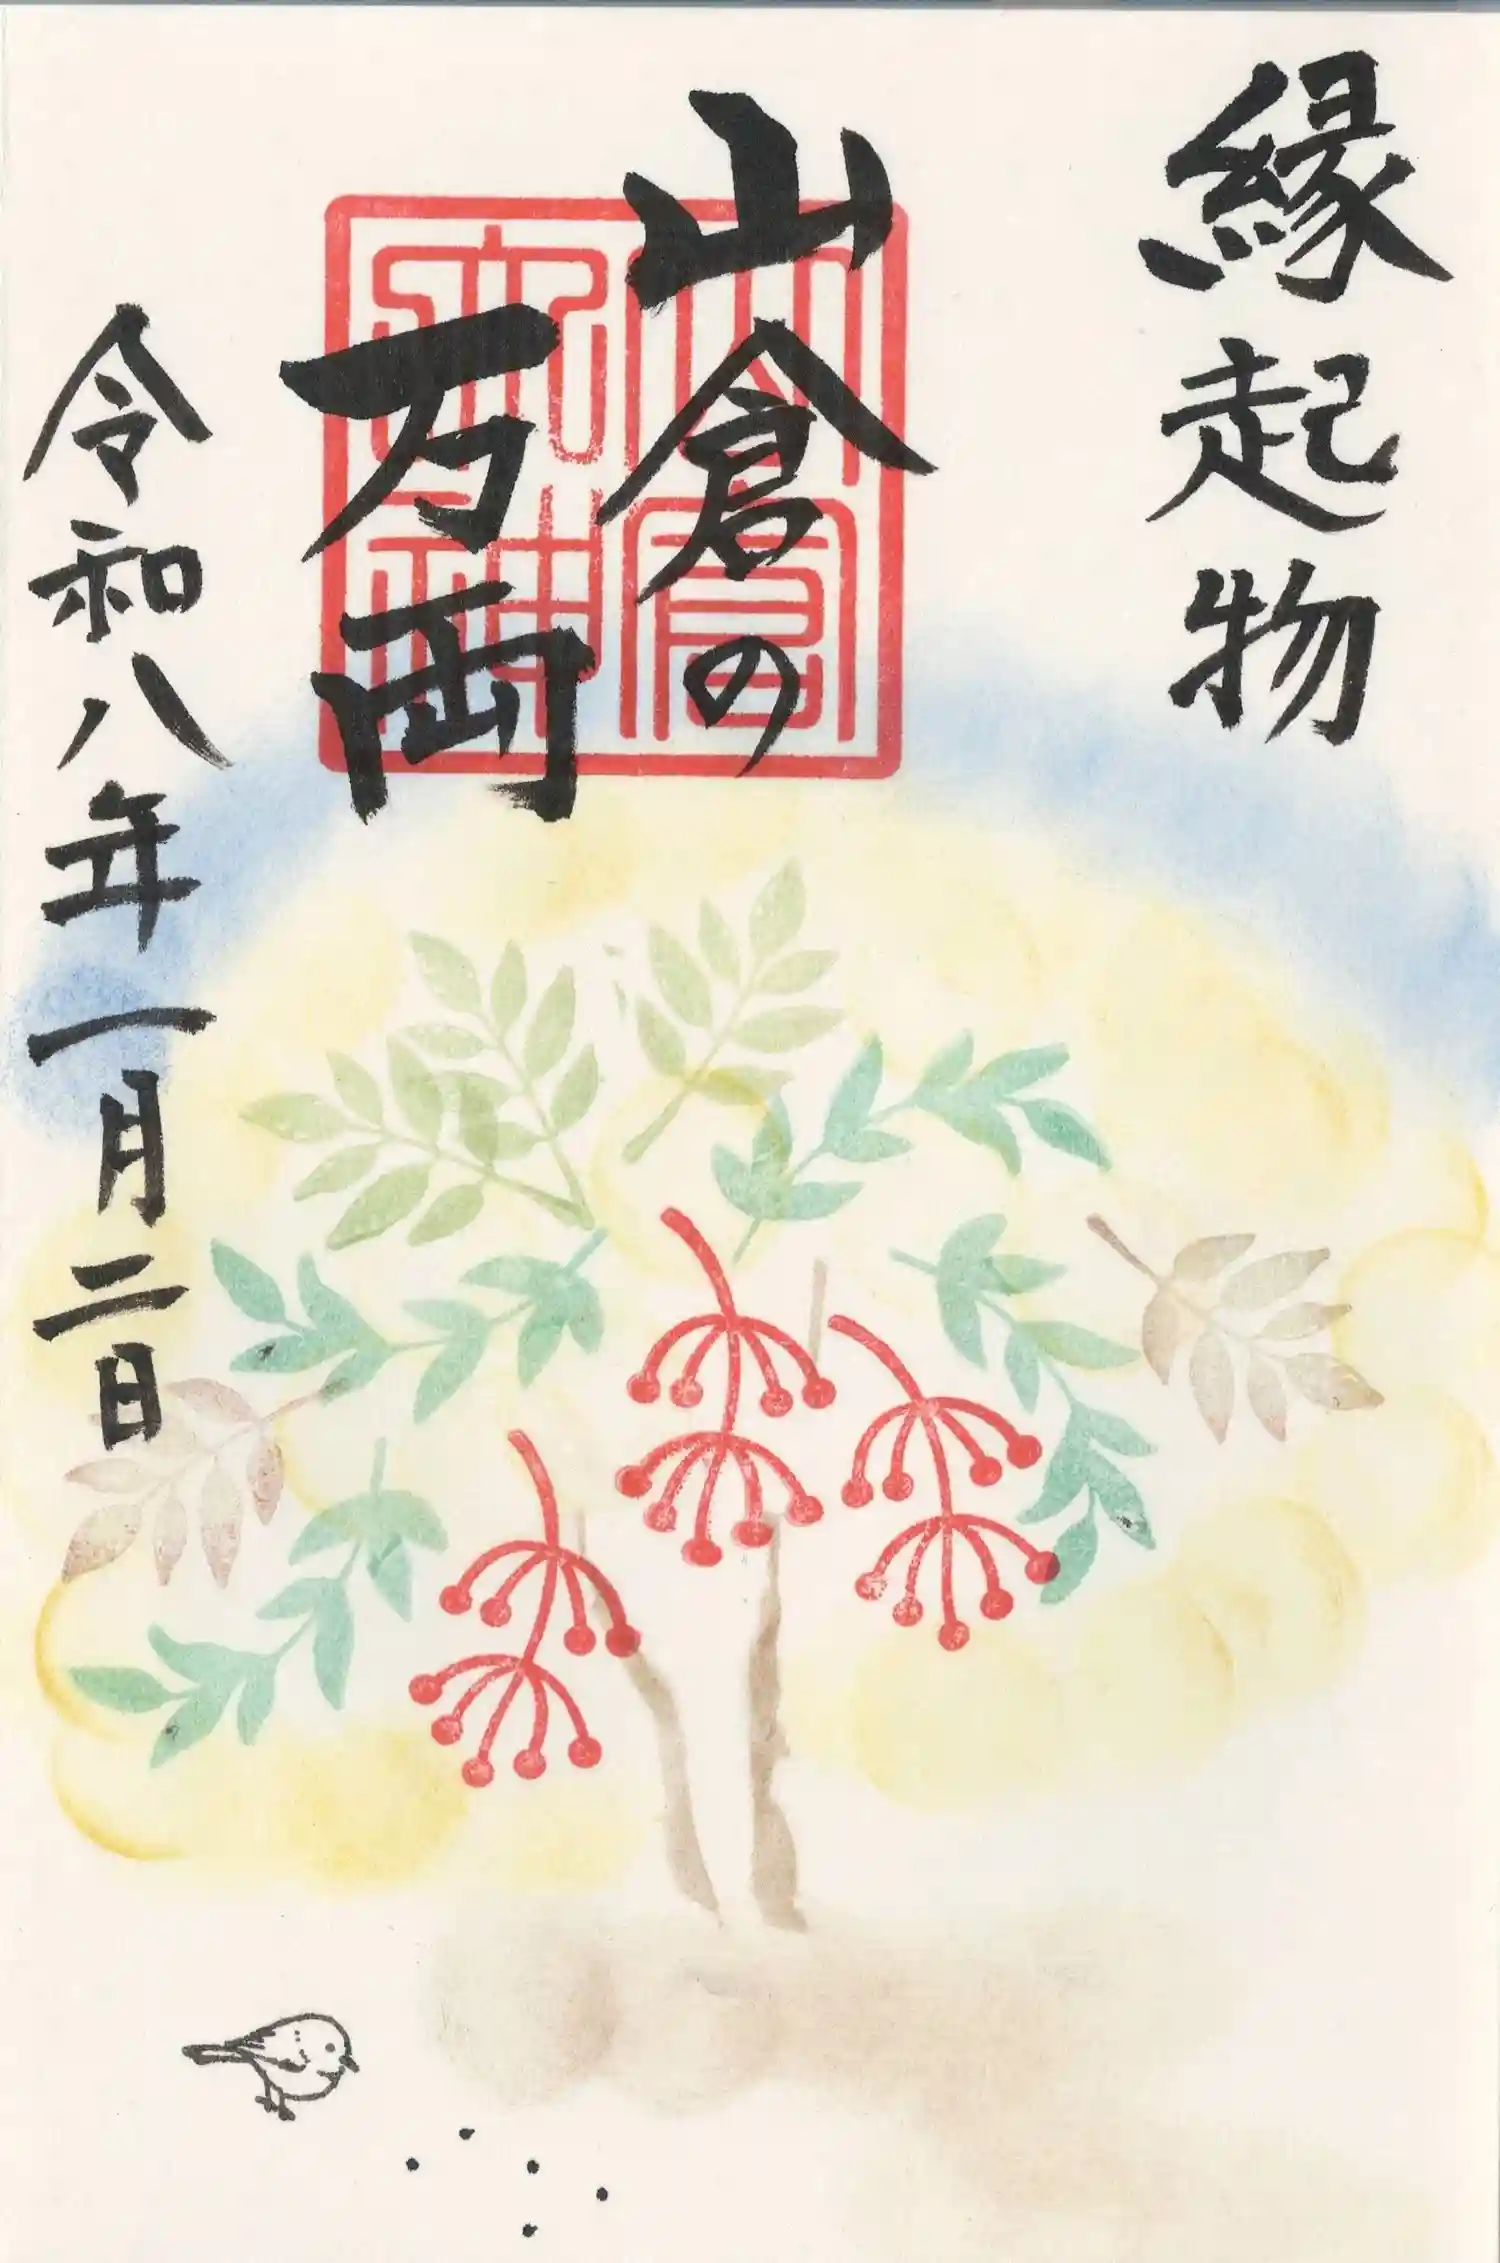 縁起物
山倉の
万両
令和八年一月二日
山倉
大神